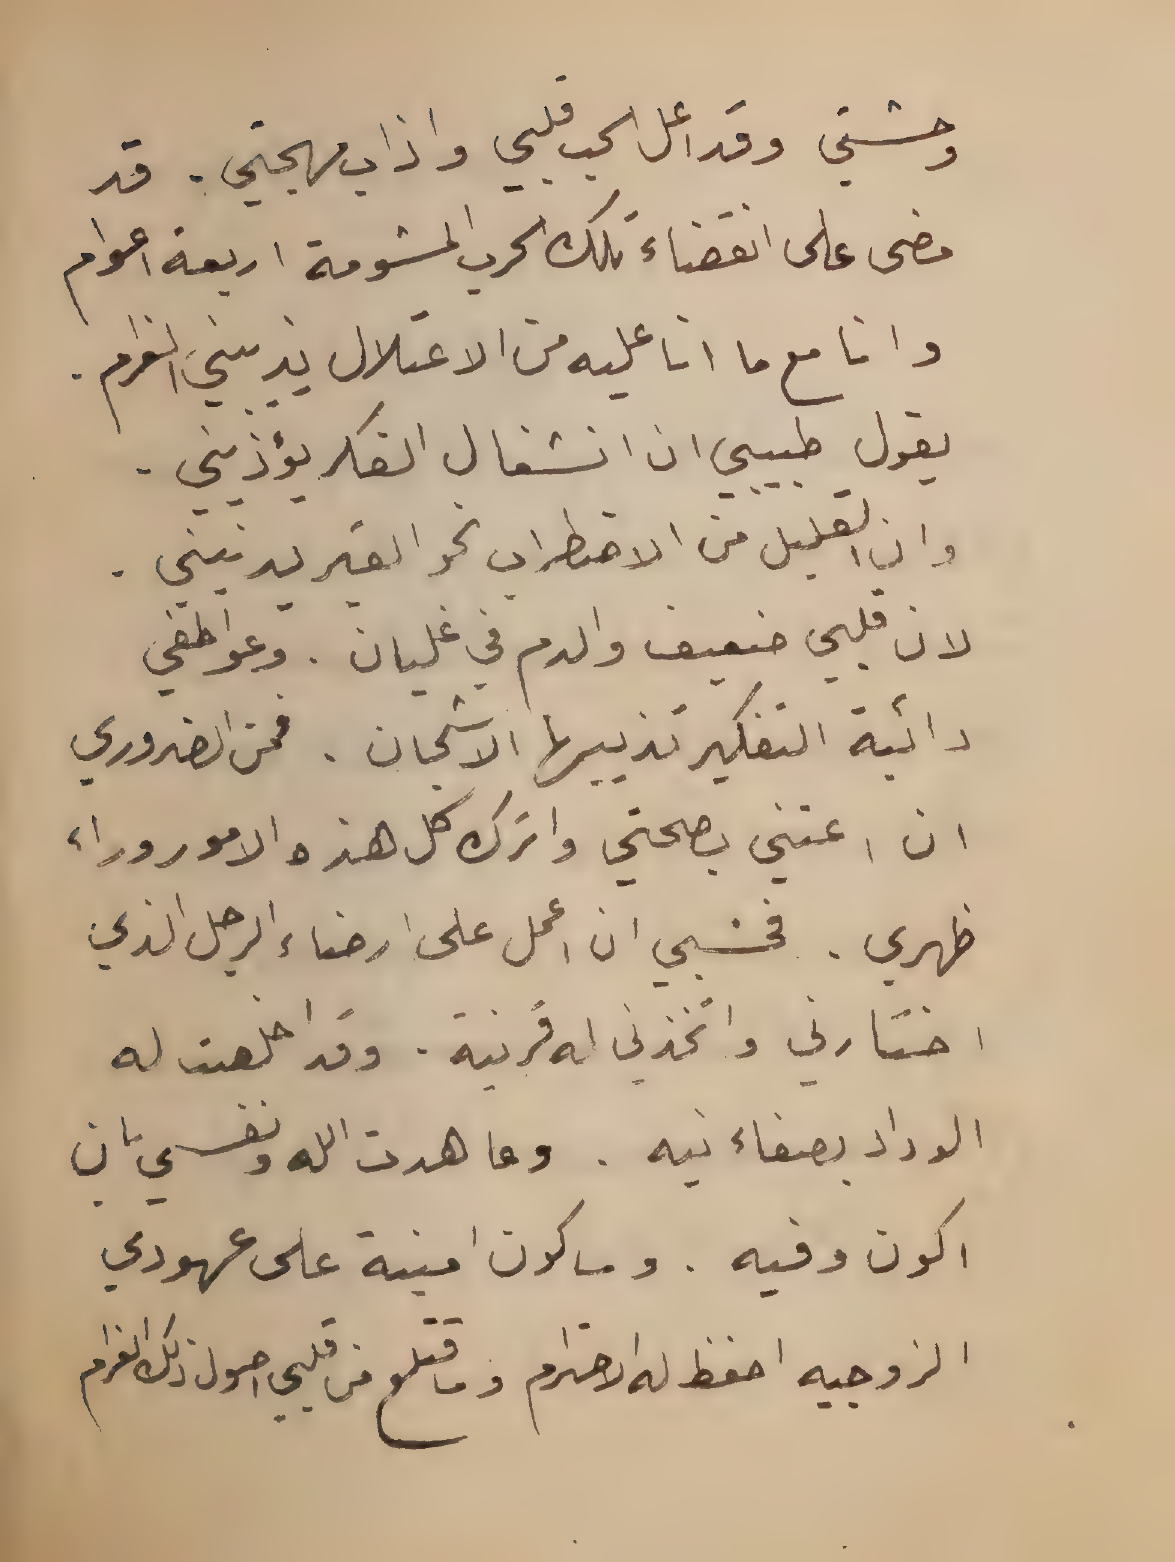 وحشتي وقد اعل الحب قلبي واذاب مهجتي . قد
مضى على انقضاء تلك الحرب المشومة اربعة اعوام
وانا مع ما انا عليه من الاعتلال يذيبني الغرام .
يقول طبيبي ان انشغال الفكر يؤذيني .
وان القليل من الاضطراب نحو القبر يدنيني .
لان قلبي ضعيف والدم في غليان . وعواطفي
دائبة التفكير تذيبها الاشجان . فمن الضروري
ان اعتني بصحتي واترك كل هذه الامور وراء
ظهري . فحسبي ان اعمل على ارضاء الرجل الذي
اختارني واتخذني له قرينة . وقد اخلصت له
الوداد بصفاء نيه . وعاهدت الله ونفسي بان
اكون وفيه . وساكون امينة على عهودي
الزوجيه احفظ له الاحترام وساقتلع من قلبي اصول ذلك الغرام